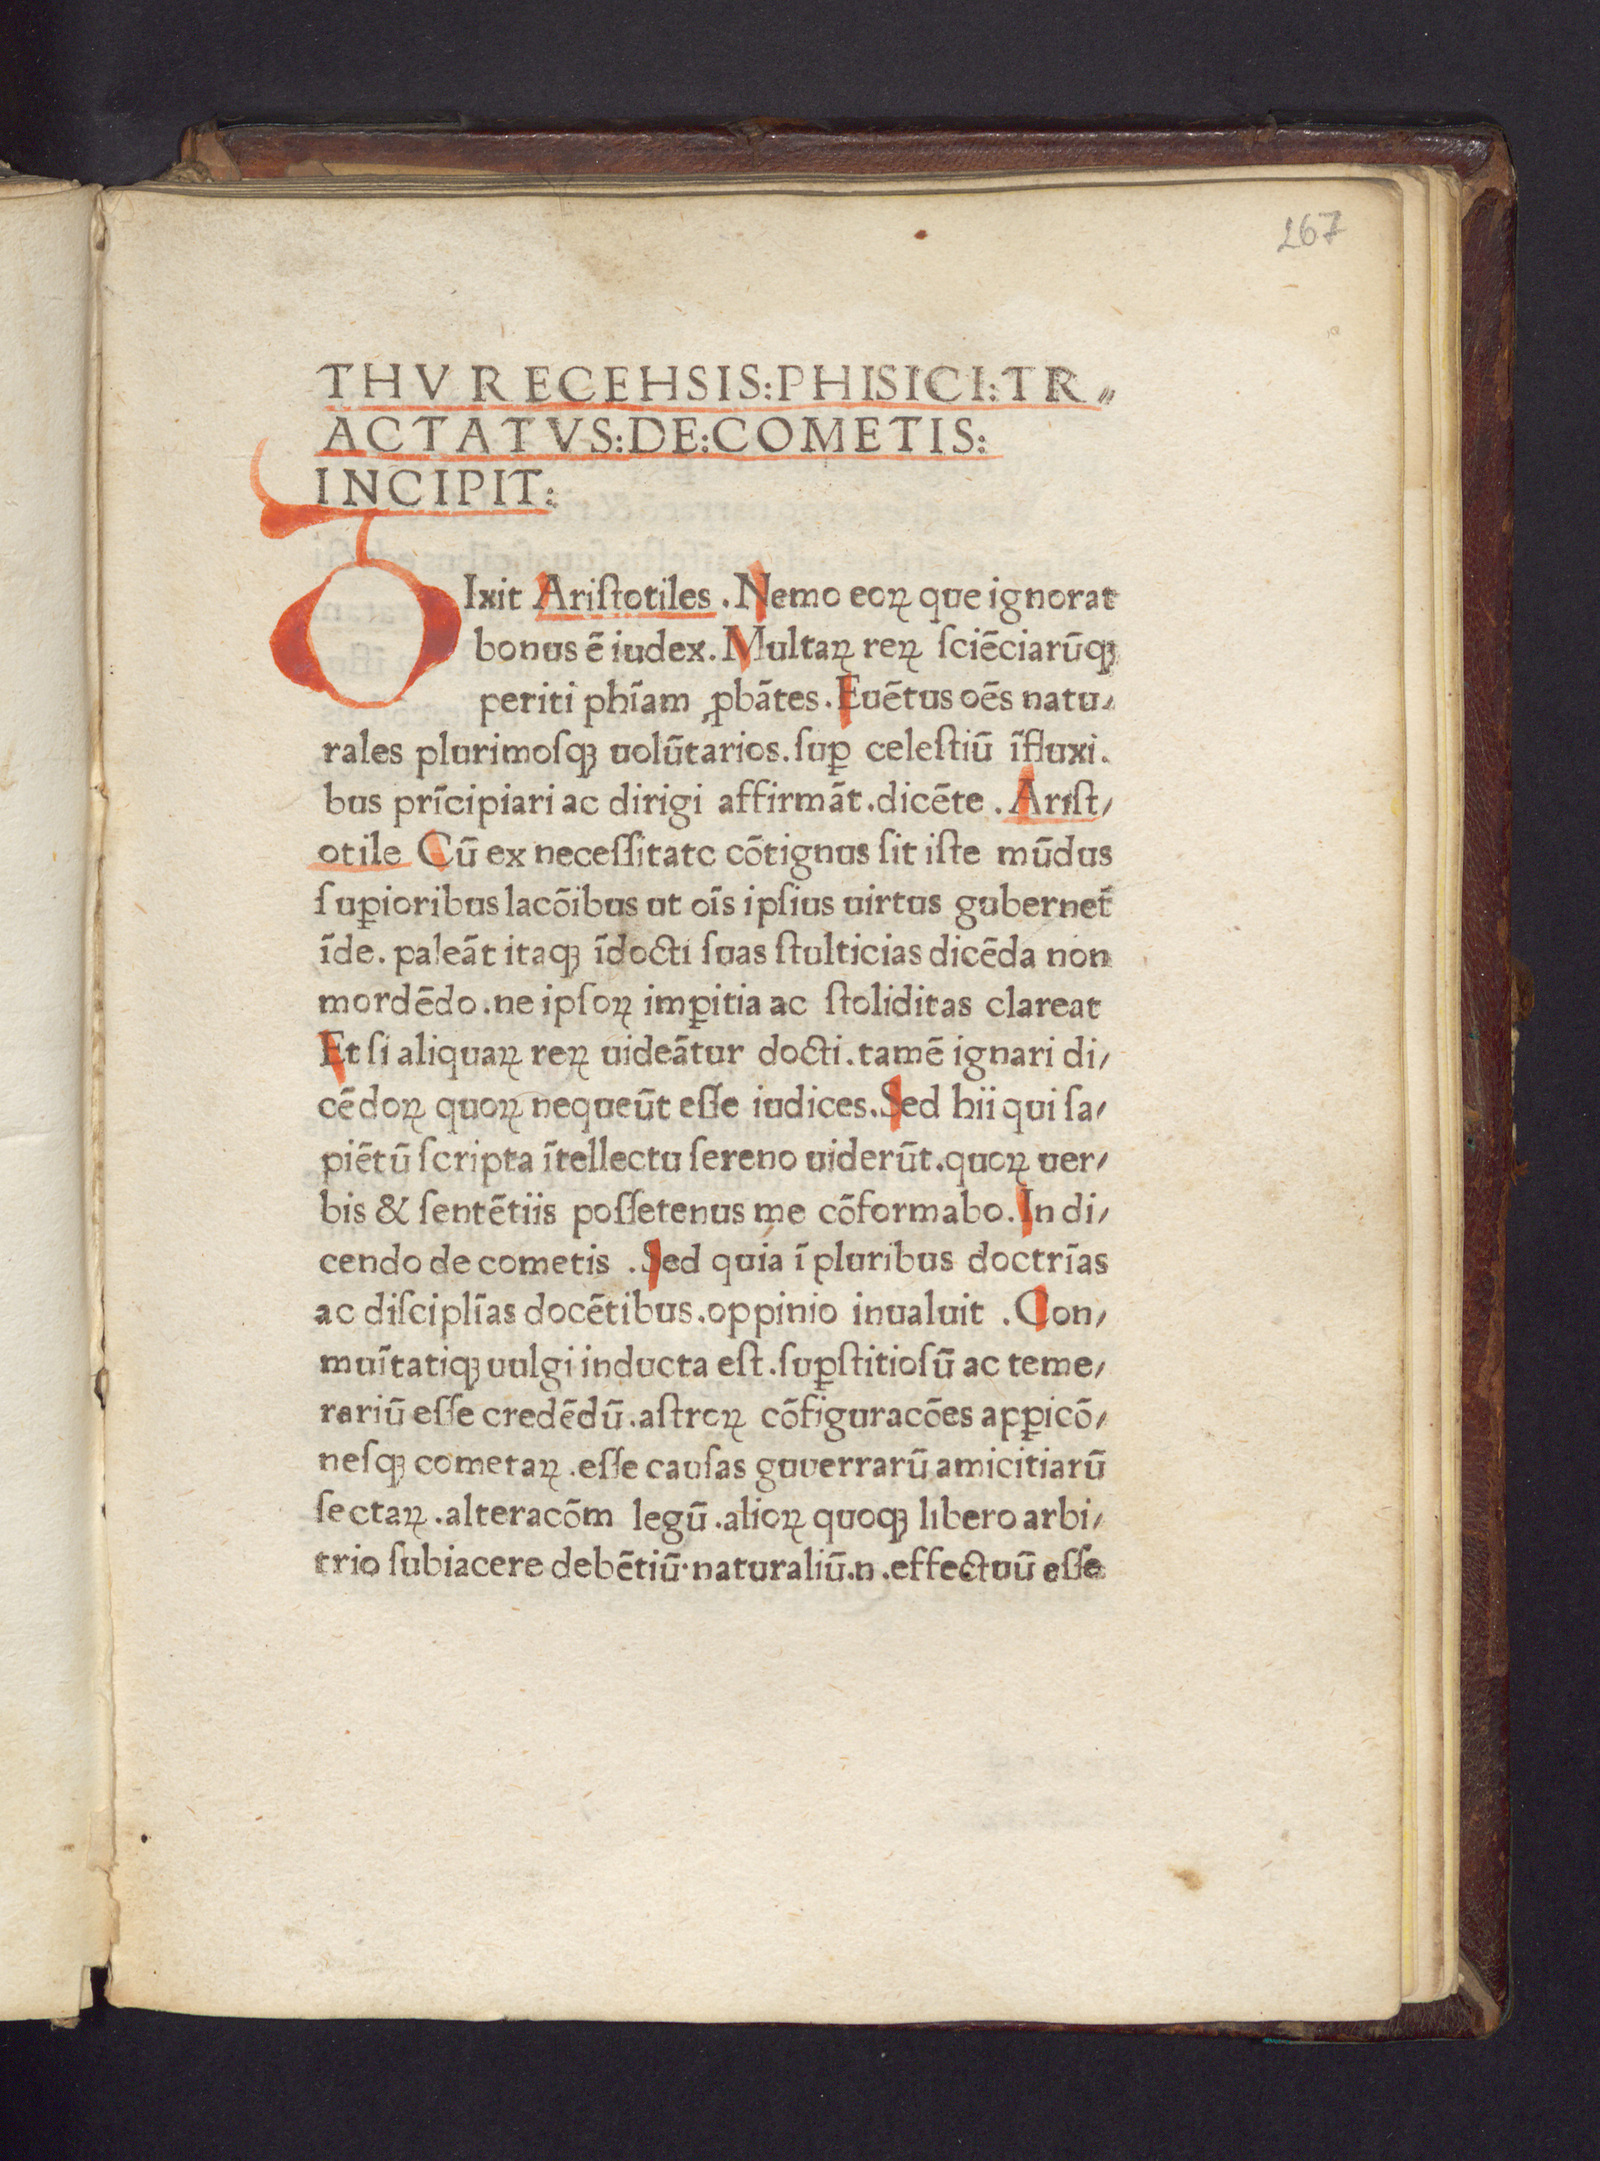 267
THVRECEHSIS:PHISICI:TR〃
ACTATVS:DE:COMETIS:
INCIPIT:
DIxit Ariſtotiles . Nemo eoꝝ que ignorat
bonus ē iudex. Multaꝝ reꝝ ſciēciarūqꝫ
periti phīam ꝓbātes. Euētus oēs natu/
rales plurimoſqꝫ uolūtarios. ſuꝑ celeſtiū īfluxi.
bus prīcipiari ac dirigi affirmāt. dicēte . Ariſt/
otile Cū ex neceſſitatc cōtignus ſit iſte mūdus
ſuꝑioribus lacōibus ut oīs ipſius uirtus gubernet̄
īde. paleāt itaqꝫ īdocti ſuas ſtulticias dicēda non
mordēdo. ne ipſoꝝ imꝑitia ac ſtoliditas clareat
Et ſi aliquaꝝ reꝝ uideātur docti. tamē ignari di/
cēdoꝝ quoꝝ nequeūt eſſe iudices. Sed hii qui ſa/
piētū ſcripta ītellectu ſereno uiderūt. quoꝝ uer/
bis & ſentētiis poſſetenus me cōformabo. In di/
cendo de cometis . Sed quia ī pluribus doctrīas
ac diſciplīas docētibus. oppinio inualuit . Con/
muītatiqꝫ uulgi inducta eſt. ſuꝑſtitioſū ac teme/
rariū eſſe credēdū. aſtroꝝ cōfiguracōes apꝑicō/
neſqꝫ cometaꝝ . eſſe cauſas guuerrarū amicitiarū
ſectaꝝ . alteracōm legū . alioꝝ quoqꝫ libero arbi/
trio ſubiacere debētiū· naturaliū. n . effectuū eſſe